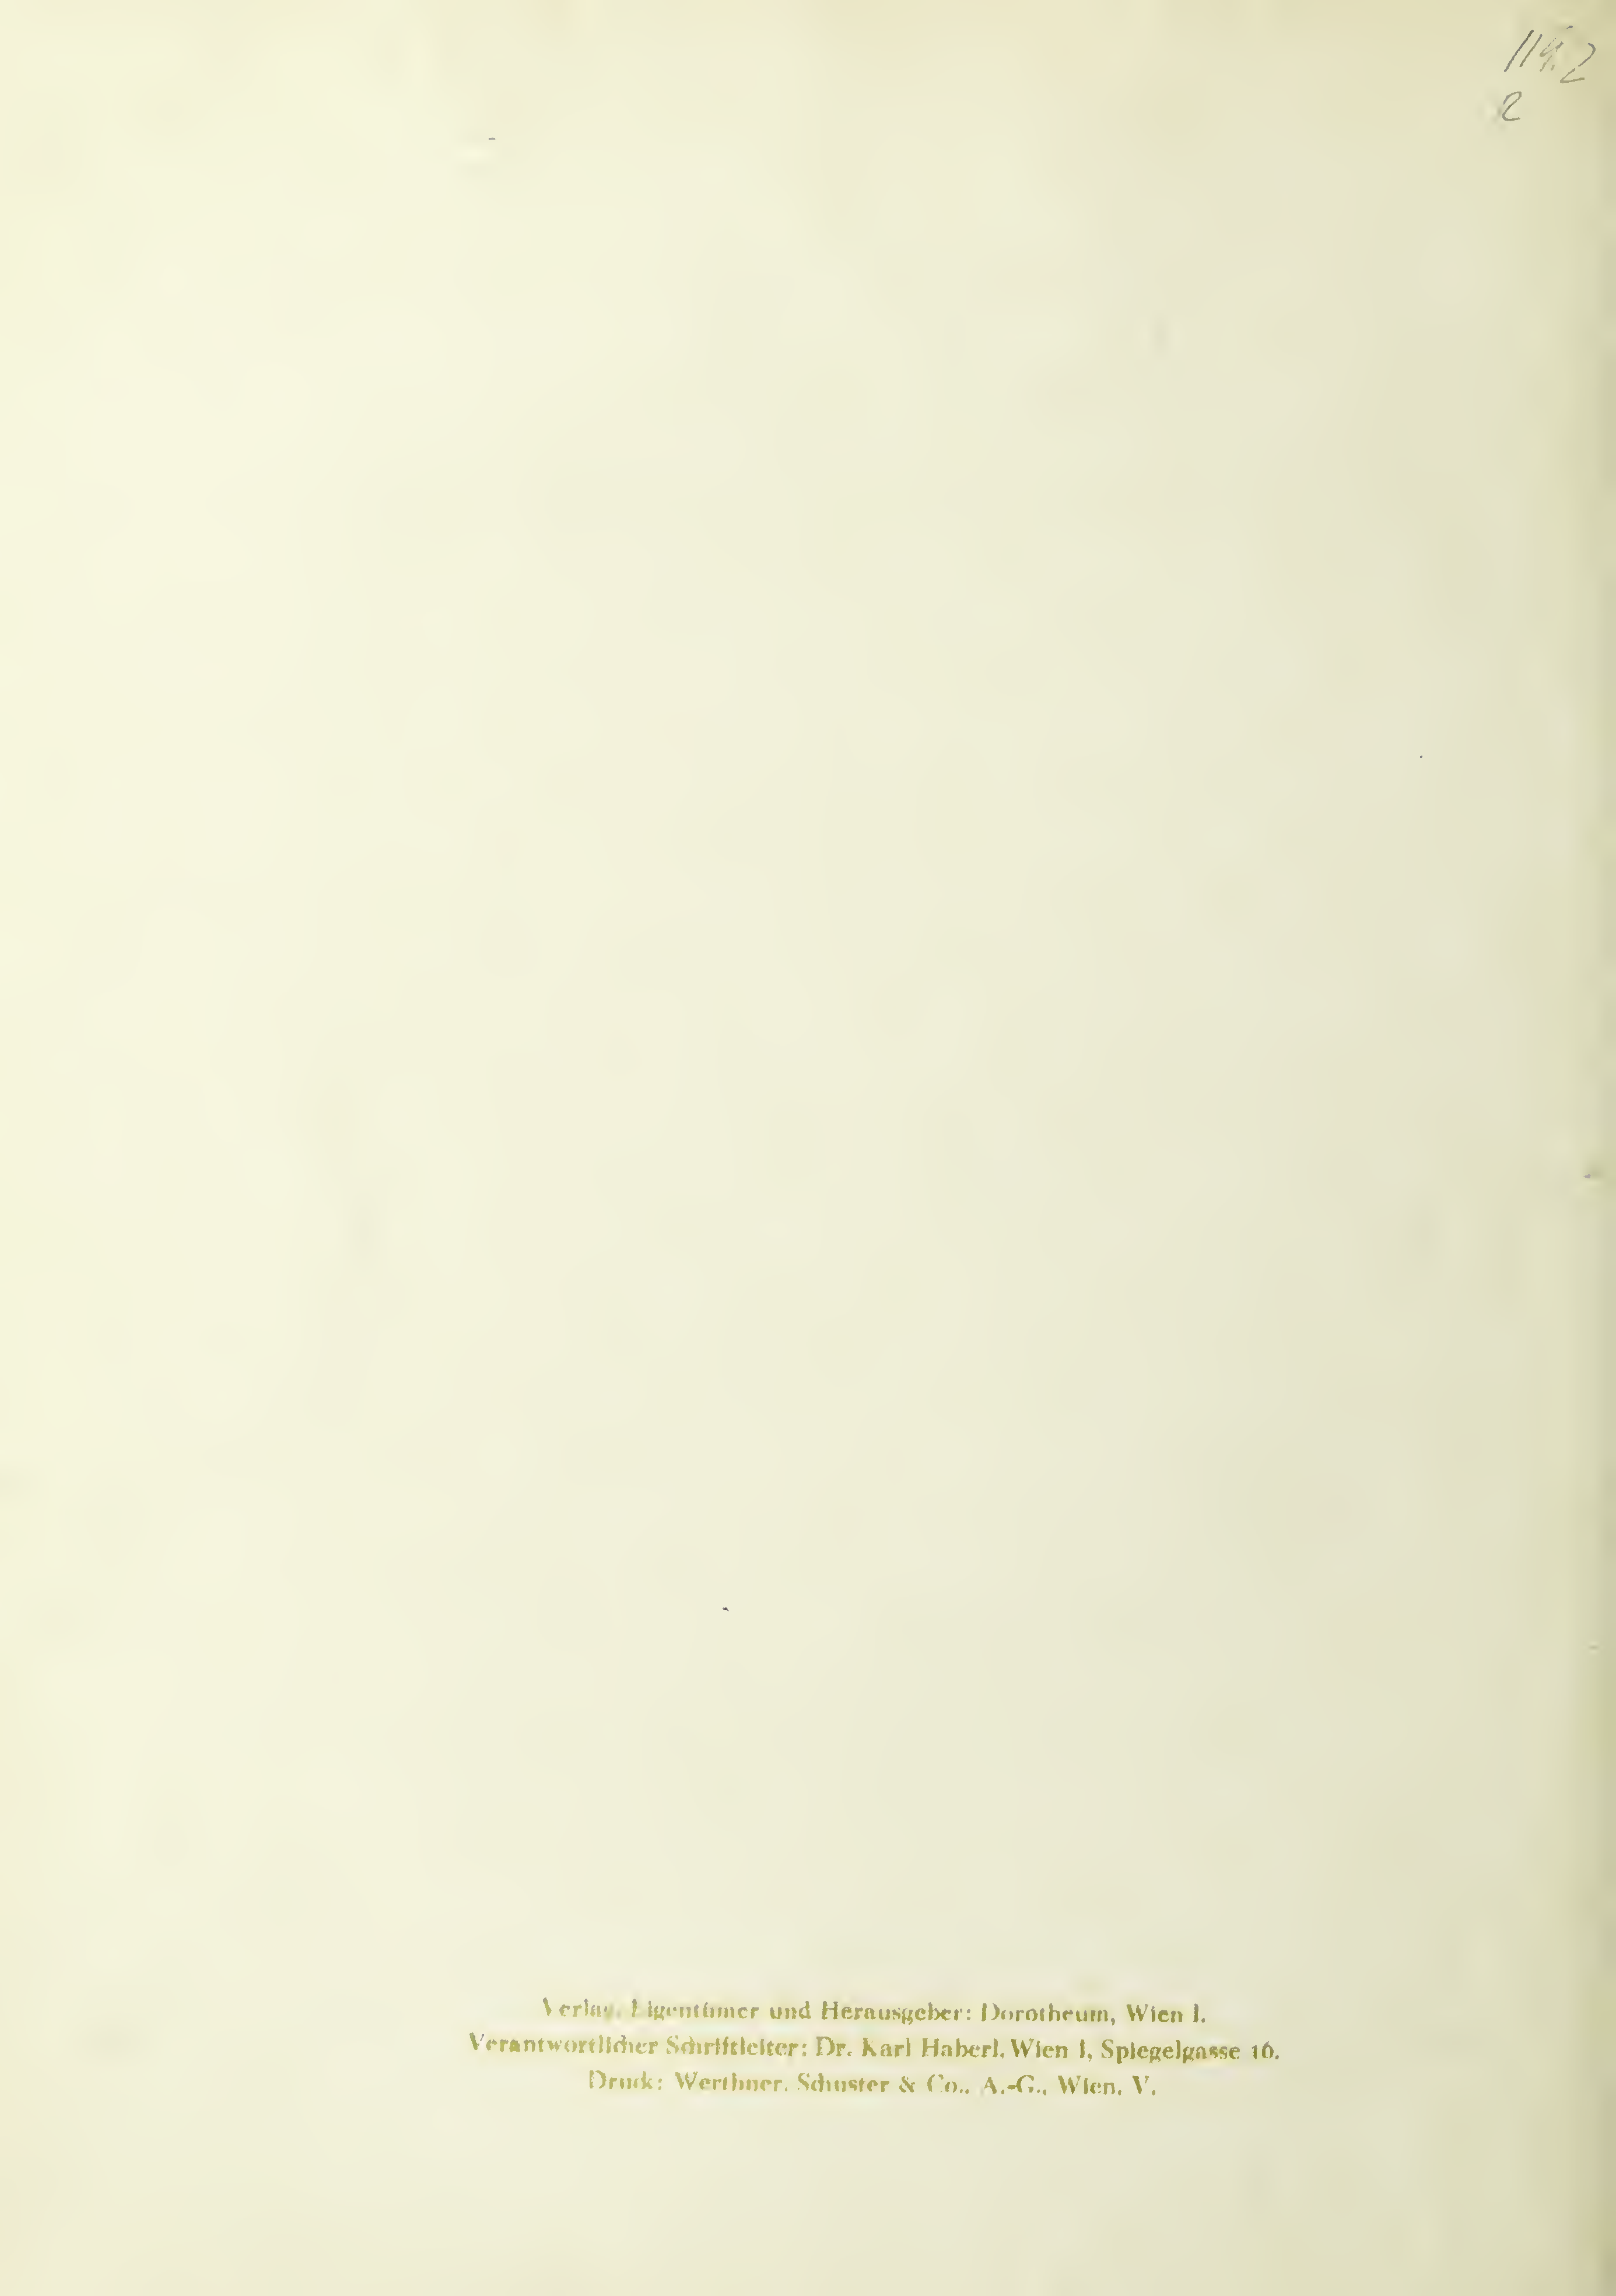 2
Verlag, Eigentümer und Herausgeber: Dorotheum, Wien I.
Verantwortlicher Schriftleiter: Dr. Karl Haberl, Wien I, Spiegelgasse 16.
Druck: Werthner, Schuster & Co., A.-G., Wien, V.